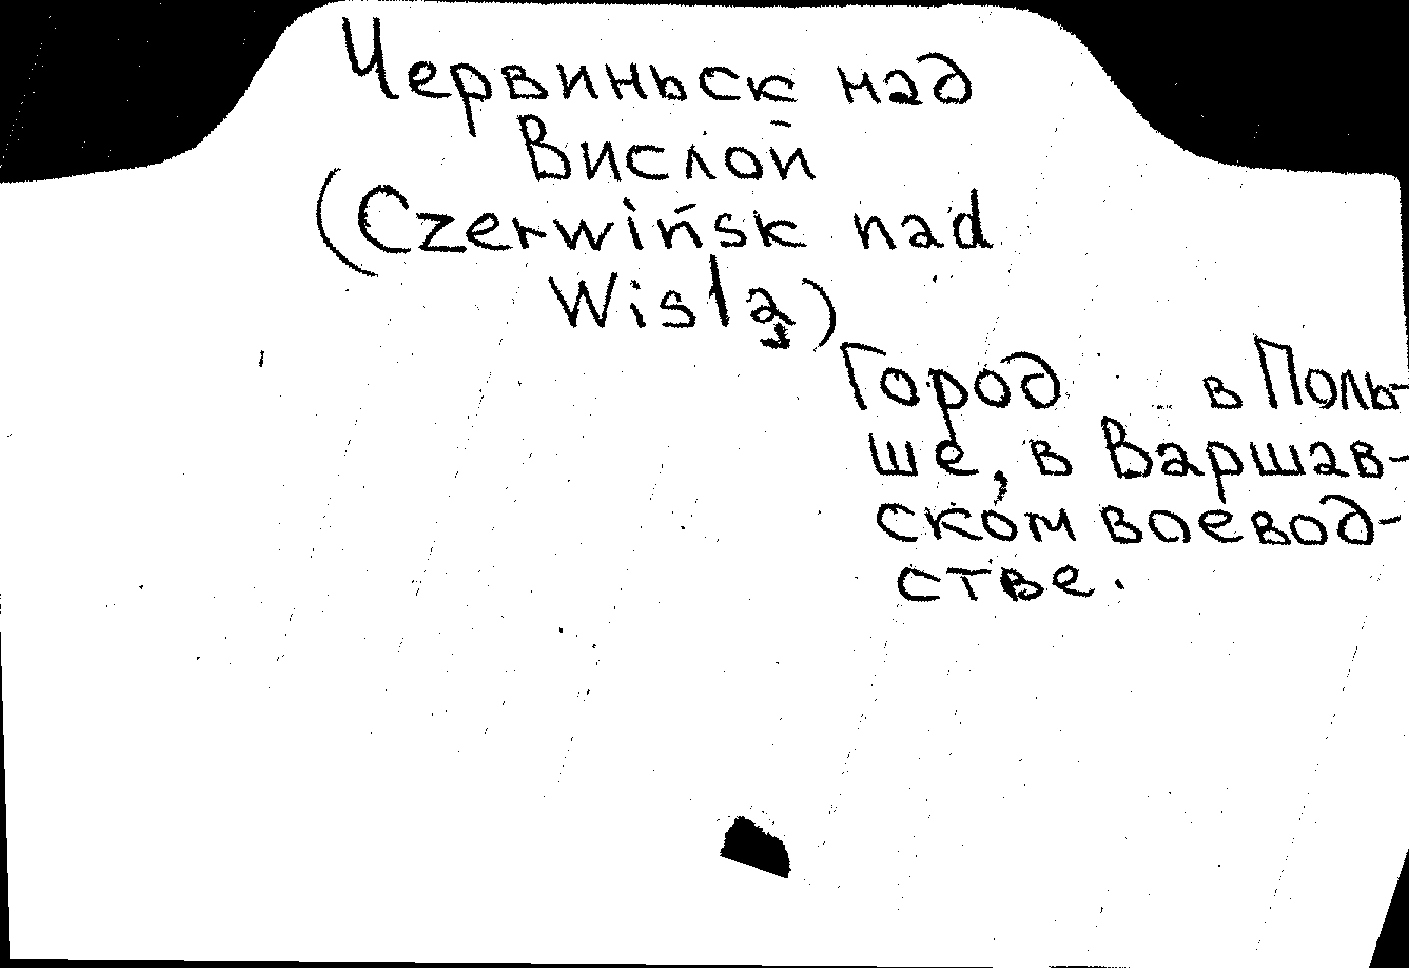 Червиньск над
Вислой
(Czerwińsk nad
Wislą)
Город в Поль-
ше, в Варшав-
ском воевод-
стве.